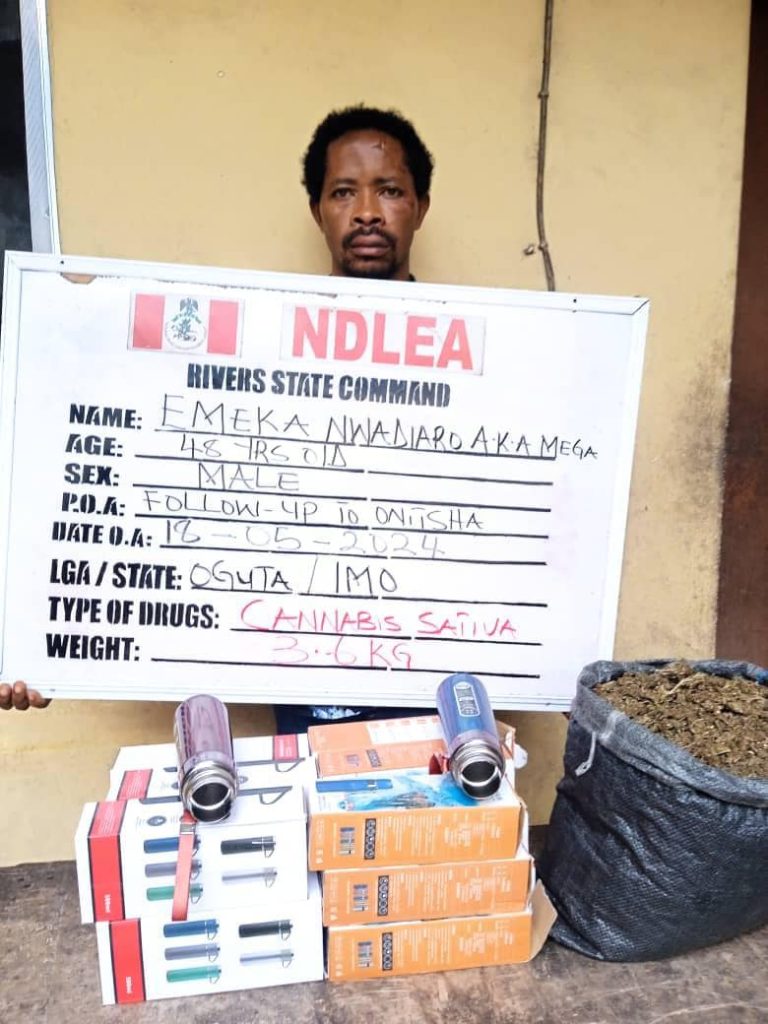 NDLEA
RIVERS STATE COMMAND
NAME: EMEKA NWADIARO A.K.A MEGA
AGE: 48 YRS OLD
SEX: MALE
P.O.A: FOLLOW-UP TO ONITSHA
DATE O.A: 18-05-2024
LGA / STATE: OGUTA / IMO
TYPE OF DRUGS: CANNABIS SATIVA
WEIGHT: 3.6KG